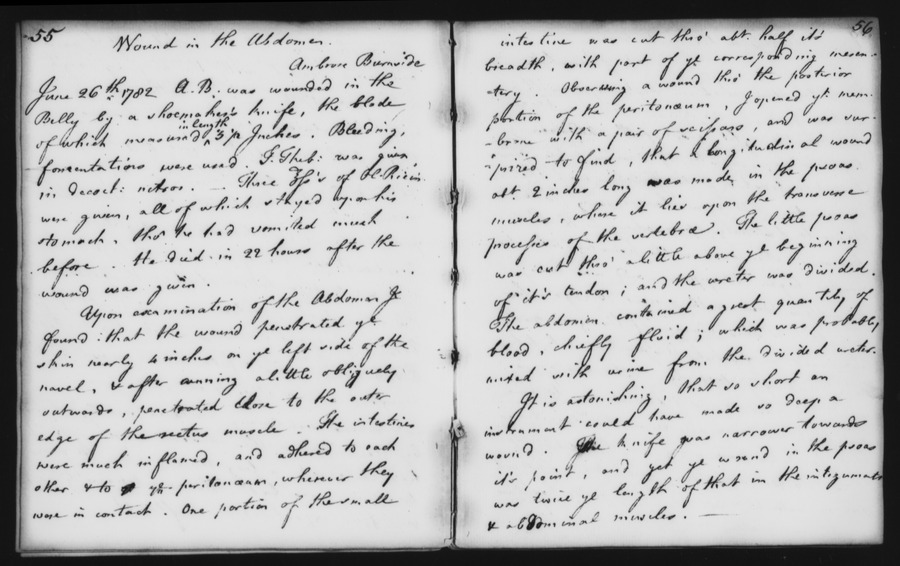 55
Wound in the Abdomen.
Ambrose Burnside
June 26th 1782 A.B. was wounded in the
Belly by a shoemaker's knife, the blade
in length
of which measured 3 1/2 Inches. Bleeding,
fomentations were used. F. Theb: was given
in decoct: nitros. — Three Zss's of Ol. Ricin.
were given, all of which stayed upon his
stomach, tho' he had vomited much
before. He died in 22 hours after the
wound was given.
Upon examination of the Abdomen I
found that the wound penetrated ye
skin nearly 4 inches on ye left side of the
navel, & after running a little obliquely
outwards, penetrated close to the outer
edge of the rectus muscle. The intestines
were much inflamed, and adhered to each
other & to ye peritonæum, wherever they
were in contact. One portion of the small
56
intestine was cut thro' abt. half its
breadth, with part of ye corresponding mesen-
-tery. Observing a wound thro' the posterior
portion of the peritonæum, I opened yt. mem-
-brane with a pair of scissars, and was sur-
-prized to find, that a longitudinal wound
abt. 2 inches long was made in the psoas
muscles, where it lies upon the transverse
processes of the vertebræ. The little psoas
was cut thro' a little above ye beginning
of it's tendon; and the ureter was divided.
The abdomen contained a great quantity of
blood, chiefly fluid; which was probably
mixed with urine from the divided ureter.
It is astonishing, that so short an
instrument could have made so deep a
wound. The knife was narrower towards
it's point, and yet ye wound in the psoas
was twice ye length of that in the integuments
& abdominal muscles. —